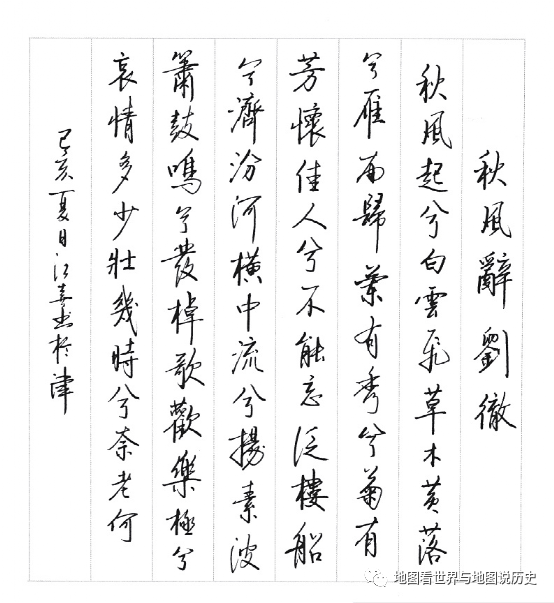 秋風辭劉徹
秋風起兮白雲飛草木黃落
兮雁南歸蘭有秀兮菊有
芳懷佳人兮不能忘泛樓船
兮濟汾河橫中流兮揚素波
簫鼓鳴兮發棹歌歡樂極兮
哀情多少壯幾時兮奈老何
己亥夏日江書於津
地图看世界与地图说历史